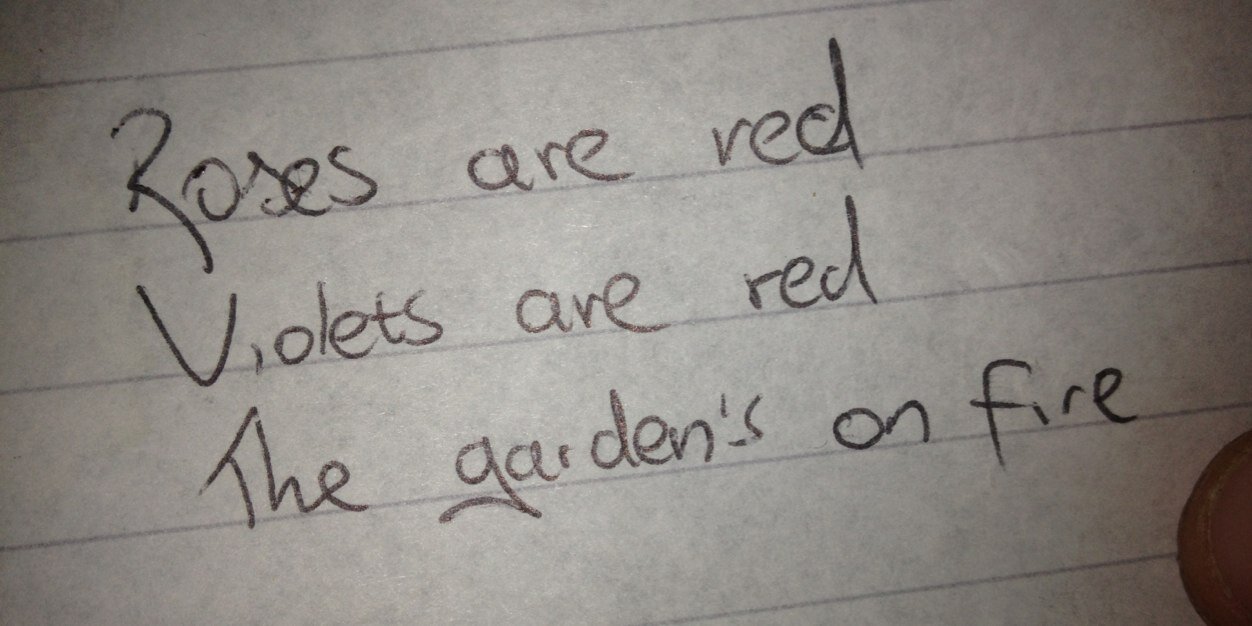 Roses are red
Violets are red
The garden's on fire